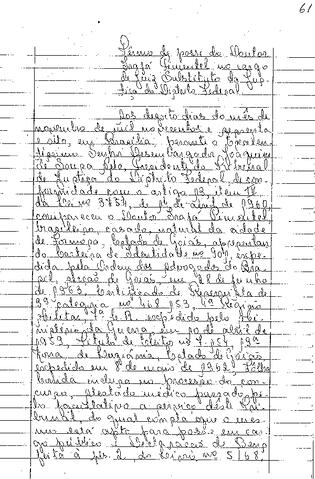 61
Têrmo de posse do Doutor
Irajá Pimentel no cargo
de Juiz Substituto da Jus-
tiça do Distrito Federal.
Aos dezoito dias do mês de
novembro de mil novecentos e sessenta
e oito, em Brasília, perante o Excelen-
tíssimo Senhor Desembargador Joaquim
de Sousa Neto, Presidente do Tribunal
de Justiça do Distrito Federal, de con-
formidade com o artigo 13, item II,
da Lei nº 3754, de 14 de abril de 1960,
compareceu o Doutor Irajá Pimentel,
brasileiro, casado, natural da cidade
de Formosa, Estado de Goiás, apresentan-
do carteira de identidade nº 909, expe-
dida pela Ordem dos Advogados do Bra-
sil, secção de Goiás, em 28 de junho
de 1963, Certificado de Reservista de
3ª categoria nº
Militar, expedido pelo Mi-
nistério da Guerra, em 10 de abril de
1959, Título de eleitor nº
Zona, de Estado de Goiás,
expedido em de maio de 1962, Fôlha
corrida inclusa no processo do con-
curso, atestado médico passado pe-
lo facultativo a serviço dêste Tri-
bunal, do qual consta que o mes-
mo está apto para posse em car-
go público e declaração de Bens
feita à fls. 2, do livro nº